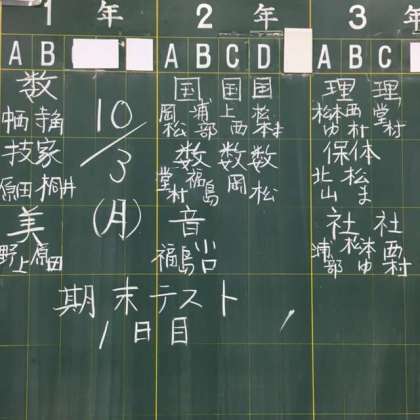 1年 2年 3年
A B A B C D A B C
数 10/3 国 国 国 理 理
岡松 浦部 上西 松本 松本ゆ 西村 堂村
技家 数 数 数 保体
原田 桐井 堂村 福島 岡 松 北山 松ま
美 (月) 音 社 社
野上 原田 福島 谷口 浦部 松本ゆ 西村
期末テスト
1日目